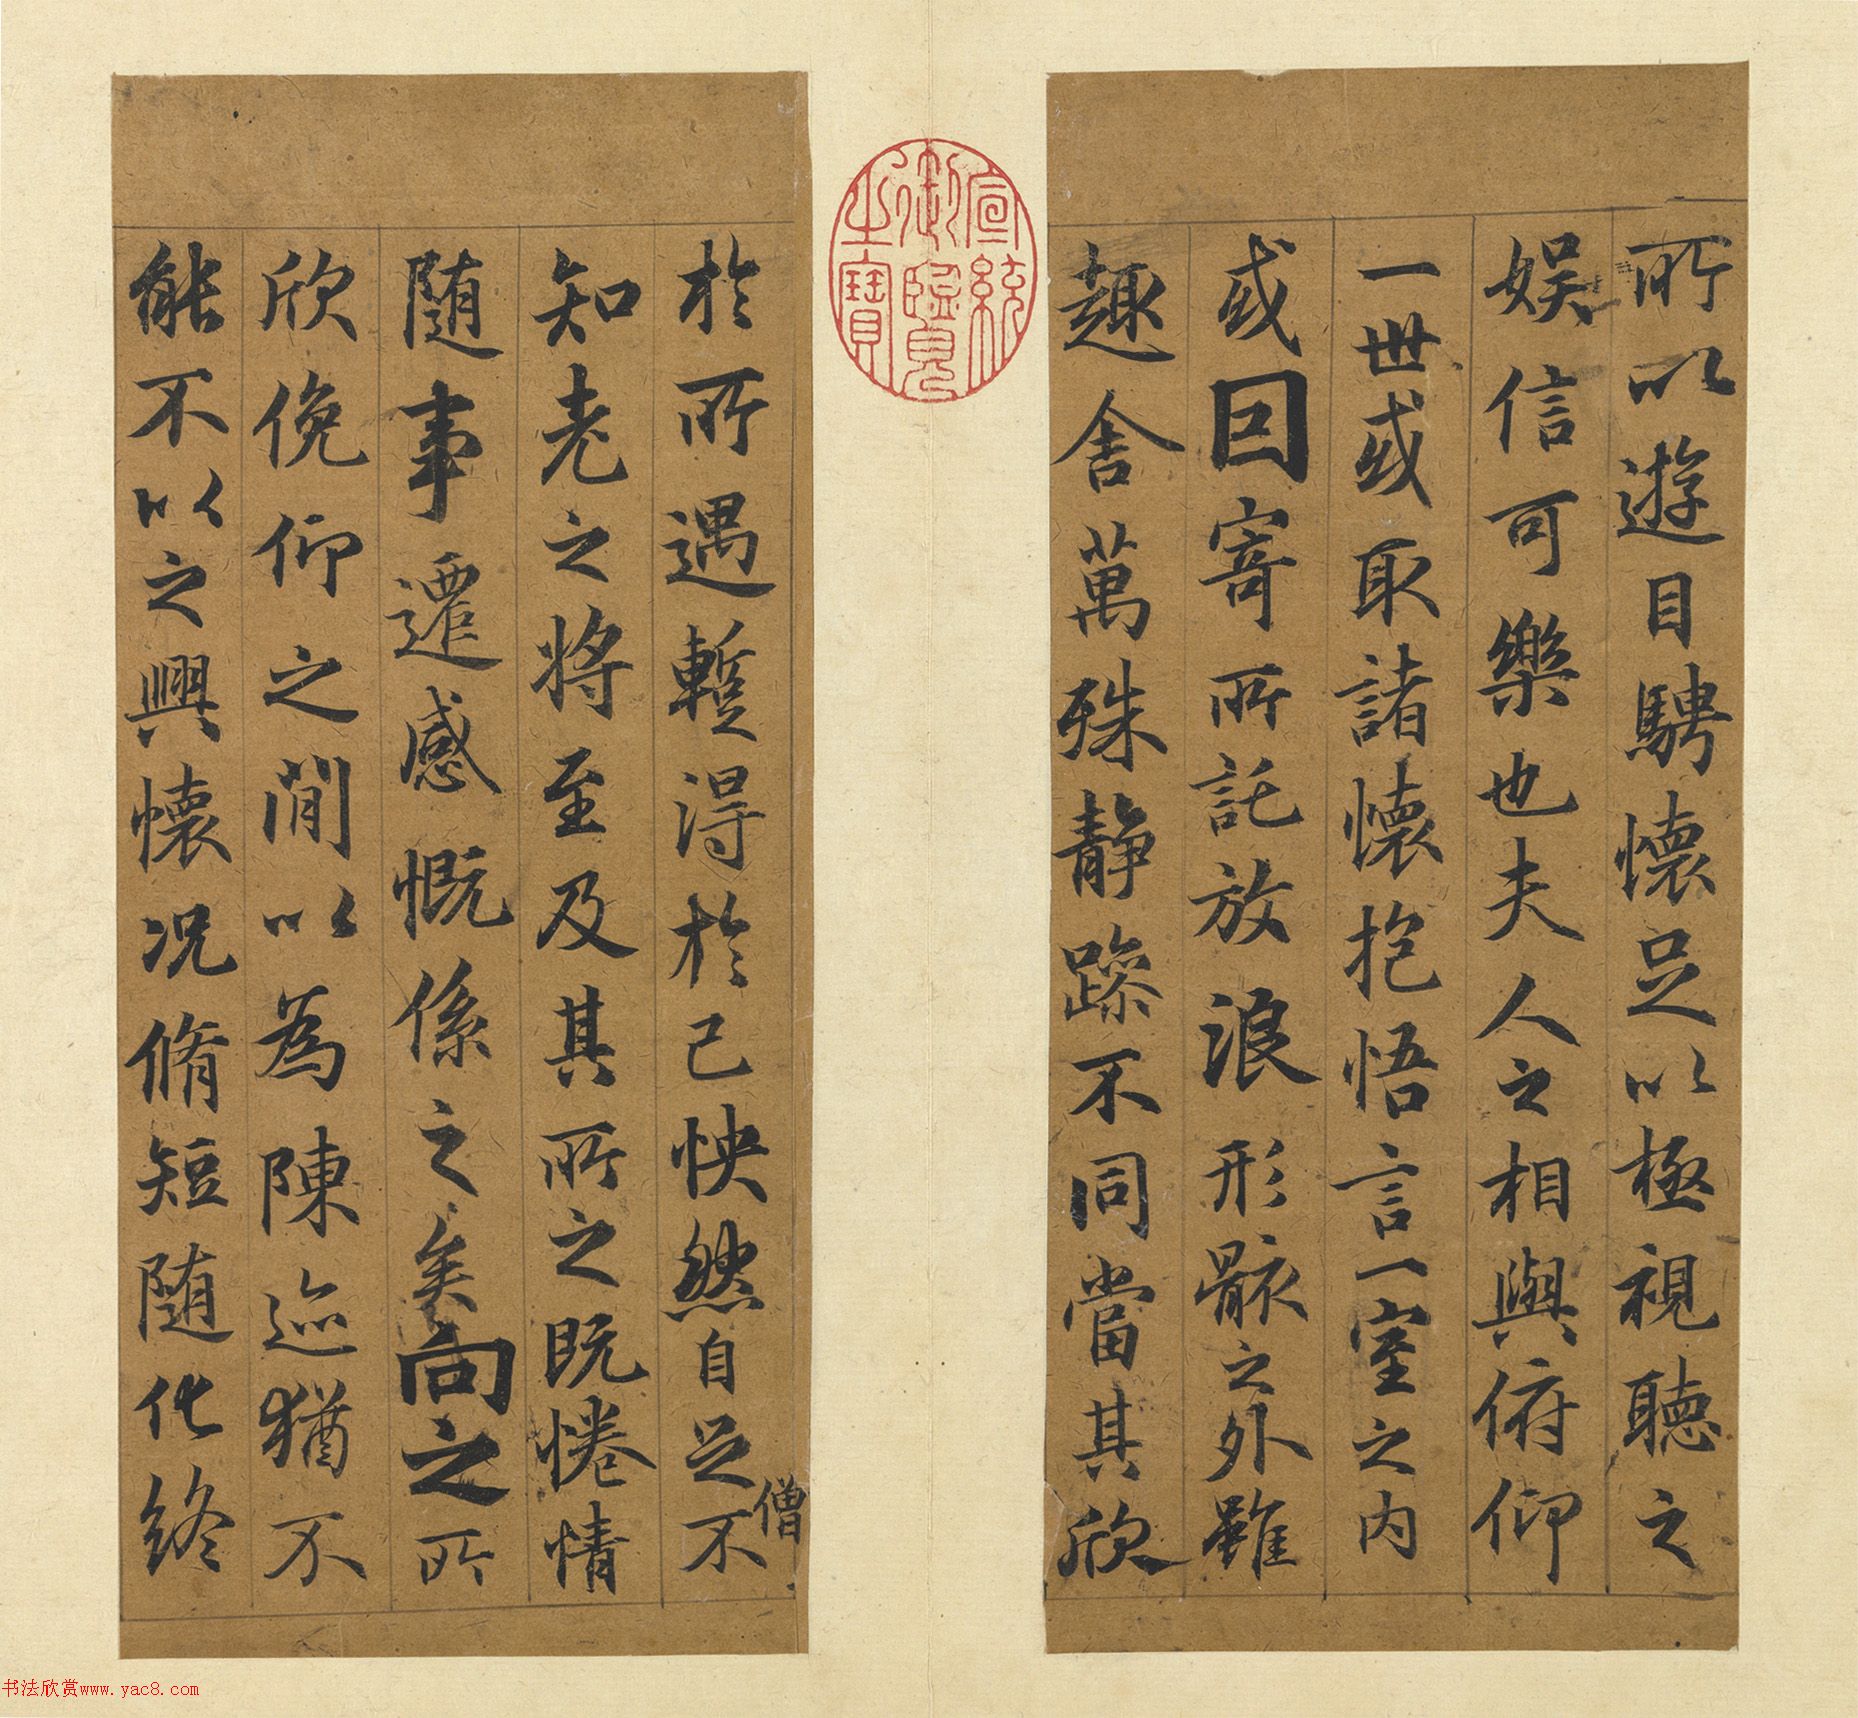 所以遊目騁懷足以極視聽之
娛信可樂也夫人之相與俯仰
一世或取諸懷抱悟言一室之內
或因寄所託放浪形骸之外雖
趣舍萬殊静躁不同當其欣
於所遇蹔得於己怏然自足不
僧
知老之將至及其所之既惓情
随事遷感慨係之矣向之所
欣俛仰之閒以為陳迹猶不
能不以之興懷况脩短随化終
宣統
御覽
之寶
书法欣赏www.yac8.com